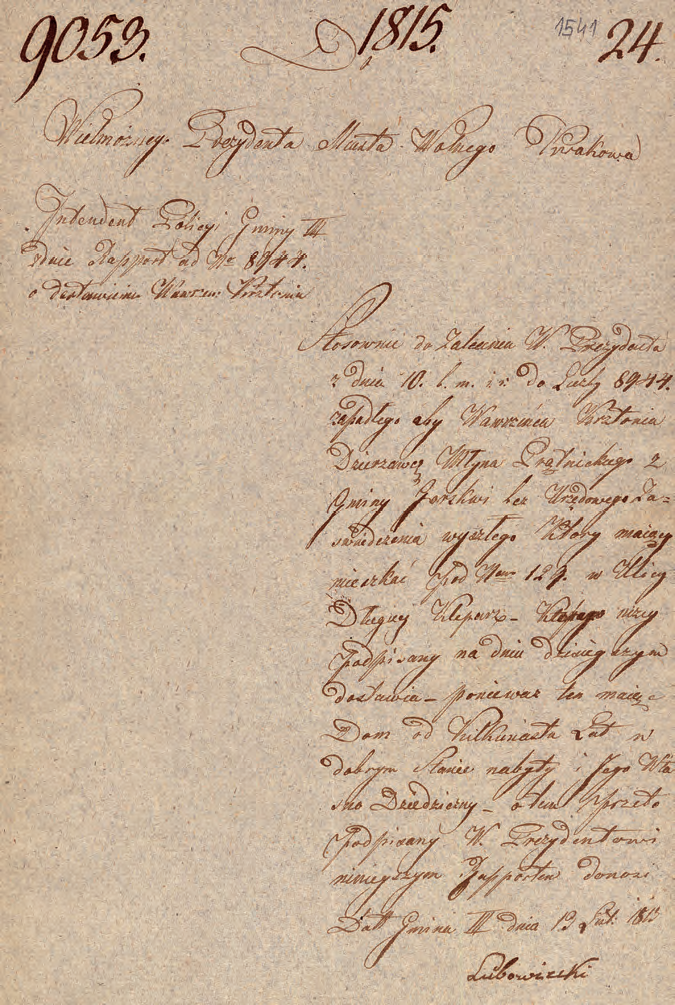 9053. 1815. 1541 24.
Wielmożnego Prezydenta Miasta Wolnego Krakowa
Intendent Policyi Gminy III
zdaie Rapport ad Nr 8944.
o dostawieniu Wawrzeń: Krztonia
Stosownie do Zalecenia W. Prezydenta
z dnia 10. b. m. i r. do Liczby 8944.
zapadłego aby Wawrzeńca Krztonia
Dzierzawcę Młyna Prątnickiego z
Gminy bez Urzędowego Za=
świadczenia wyszłego Który maiący
mieszkać Pod Nrem 129. w Ulicy
Długiey Kleparz – niżey
Podpisany na dniu dzisieyszym
dostawia – ponieważ ten maiąc
Dom od Kilkunastu Lat w
dobrym Stanie nabyty i Jego Wła
sno Dziedziczny – o tem przeto
Podpisany W. Prezydentowi
ninieyszym Rapportem donosi
Datt Gmina III dnia 13 1815
Lubowiecki